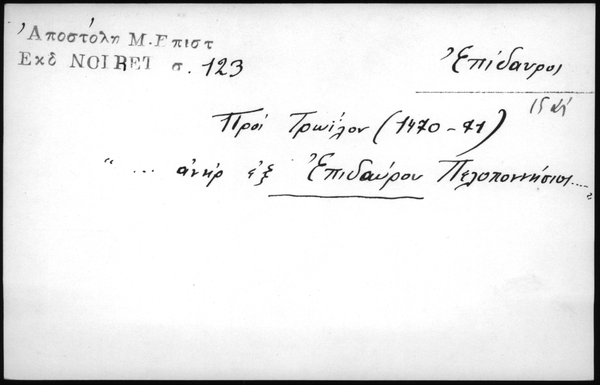 Ἀποστόλη Μ. Επιστ
Εκδ NOIRET σ. 123
Ἐπίδαυρος
15 αἰ
Πρὸς Τρωΐλον (1470-71)
“ ... ἀνὴρ ἐξ Ἐπιδαύρου Πελοποννήσιος....„